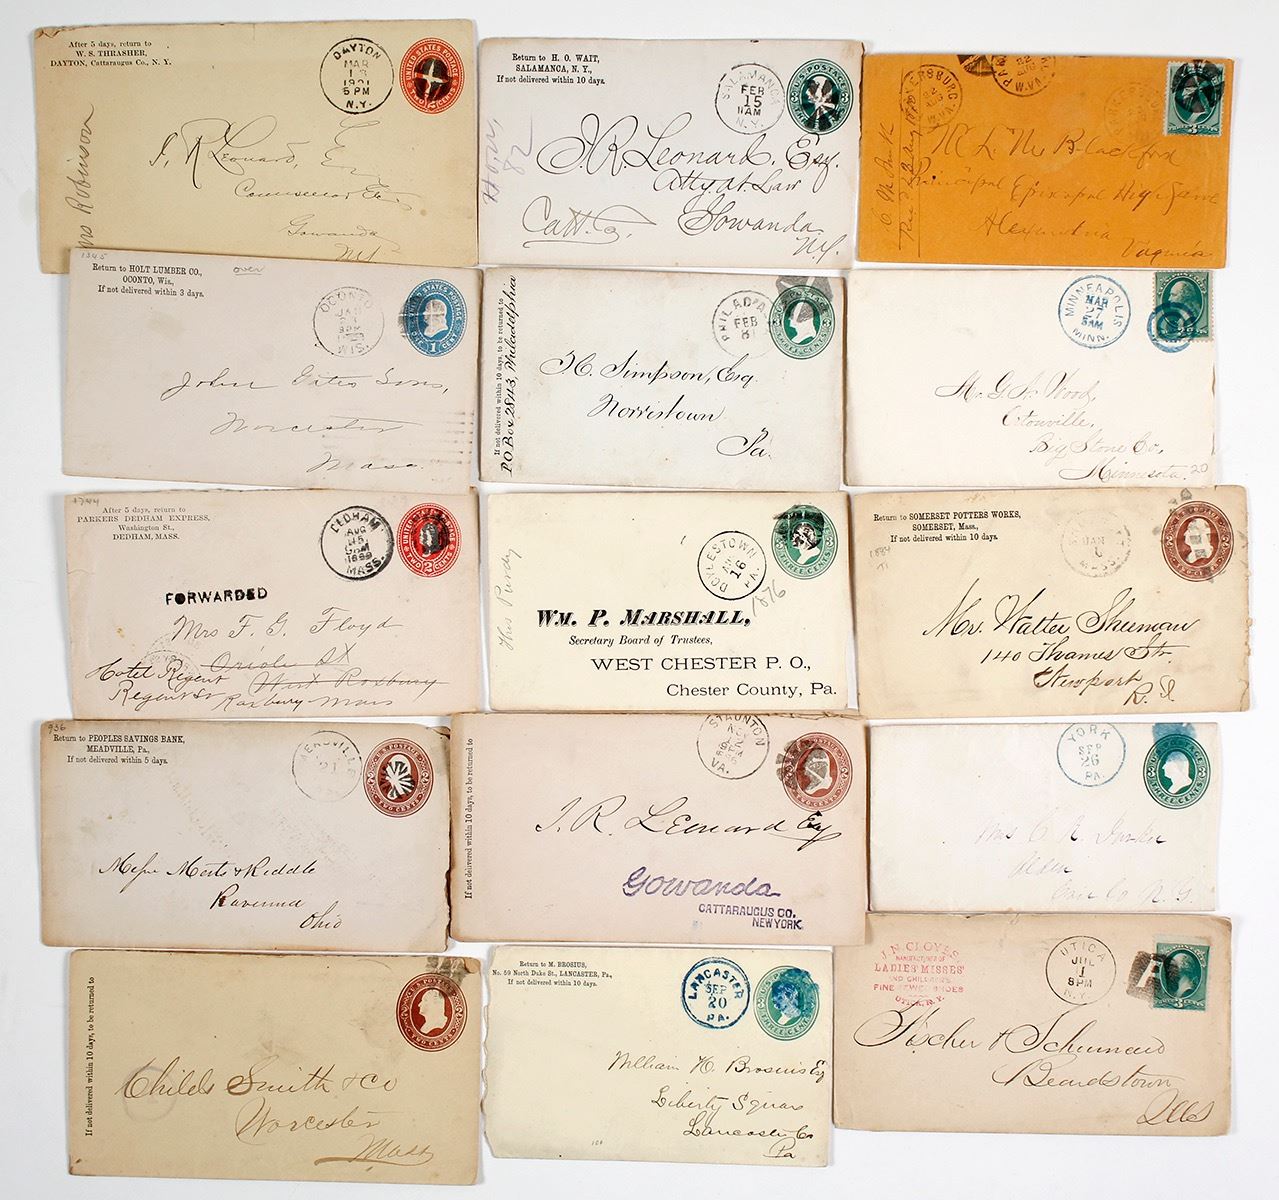 After 5 days, return to
W. S. THRASHER,
DAYTON, Cattaraugus Co., N. Y.
DAYTON
MAR
5 PM
N.Y.
UNITED STATES POSTAGE
Robinson
J. R. Leonard,
Gowanda
NY
Return to H. O. WAIT,
SALAMANCA, N. Y.,
If not delivered within 10 days.
SALAMANCA
FEB
15
11AM
N.Y.
82
J. R. Leonard. Esq.
Atty. at Law
Gowanda
Catt. Co.
N.Y.
W.VA.
W.VA.
Principal Episcopal High
Alexandria
1345
over
Return to HOLT LUMBER CO.,
OCONTO, Wis.,
If not delivered within 3 days.
OCONTO
WIS
1 CENT
John Gates Sons,
Worcester
Mass.
If not delivered within 10 days, to be returned to
P.O. Box 2843, Philadelphia
PHILAD'A
FEB
THREE CENTS
H. Simpson, Esq.
Norristown
Pa.
MINNEAPOLIS
MAR
27
5AM
MINN.
Mr. G. W. Wood,
Ortonville,
Big Stone Co,
Minnesota.
20
1744
After 5 days, return to
PARKERS DEDHAM EXPRESS,
Washington St.,
DEDHAM, MASS.
DEDHAM
AUG
MASS.
TWO 2 CENTS
FORWARDED
Mrs F. G. Floyd
Oriole St
Hotel Regent
West Roxbury
Regent St
Roxbury Mass
DOYLESTOWN
16
PA.
1876
WM. P. MARSHALL,
Secretary Board of Trustees,
WEST CHESTER P. O.,
Chester County, Pa.
Return to SOMERSET POTTERS WORKS,
SOMERSET, Mass.,
If not delivered within 10 days.
1884
JAN
MASS.
Mr. Walter Sherman
140 Thames St.
Newport
R. I
936
Return to PEOPLES SAVINGS BANK,
MEADVILLE, Pa.,
If not delivered within 5 days.
TWO CENTS
Ravenna
Ohio
If not delivered within 10 days, to be returned to
STAUNTON
VA.
TWO CENTS
J. R. Leonard Esq
Gowanda
CATTARAUGUS CO.
NEW YORK.
YORK
SEP
26
PA.
THREE CENTS
If not delivered within 10 days, to be returned to
TWO CENTS
Childs Smith & Co
Worcester
Mass
Return to M. BROSIUS,
No. 59 North Duke St., LANCASTER, Pa.,
If not delivered within 10 days.
LANCASTER
SEP
20
PA.
THREE CENTS
William H. Brosius Esq
Liberty Square
Lancaster Co
Pa
J. N. CLOYES,
MANUFACTURER OF
LADIES' MISSES'
AND CHILDREN'S
FINE SEWED SHOES
UTICA, N. Y.
UTICA
JUL
8PM
N.Y.
A
Beardstown
Ills